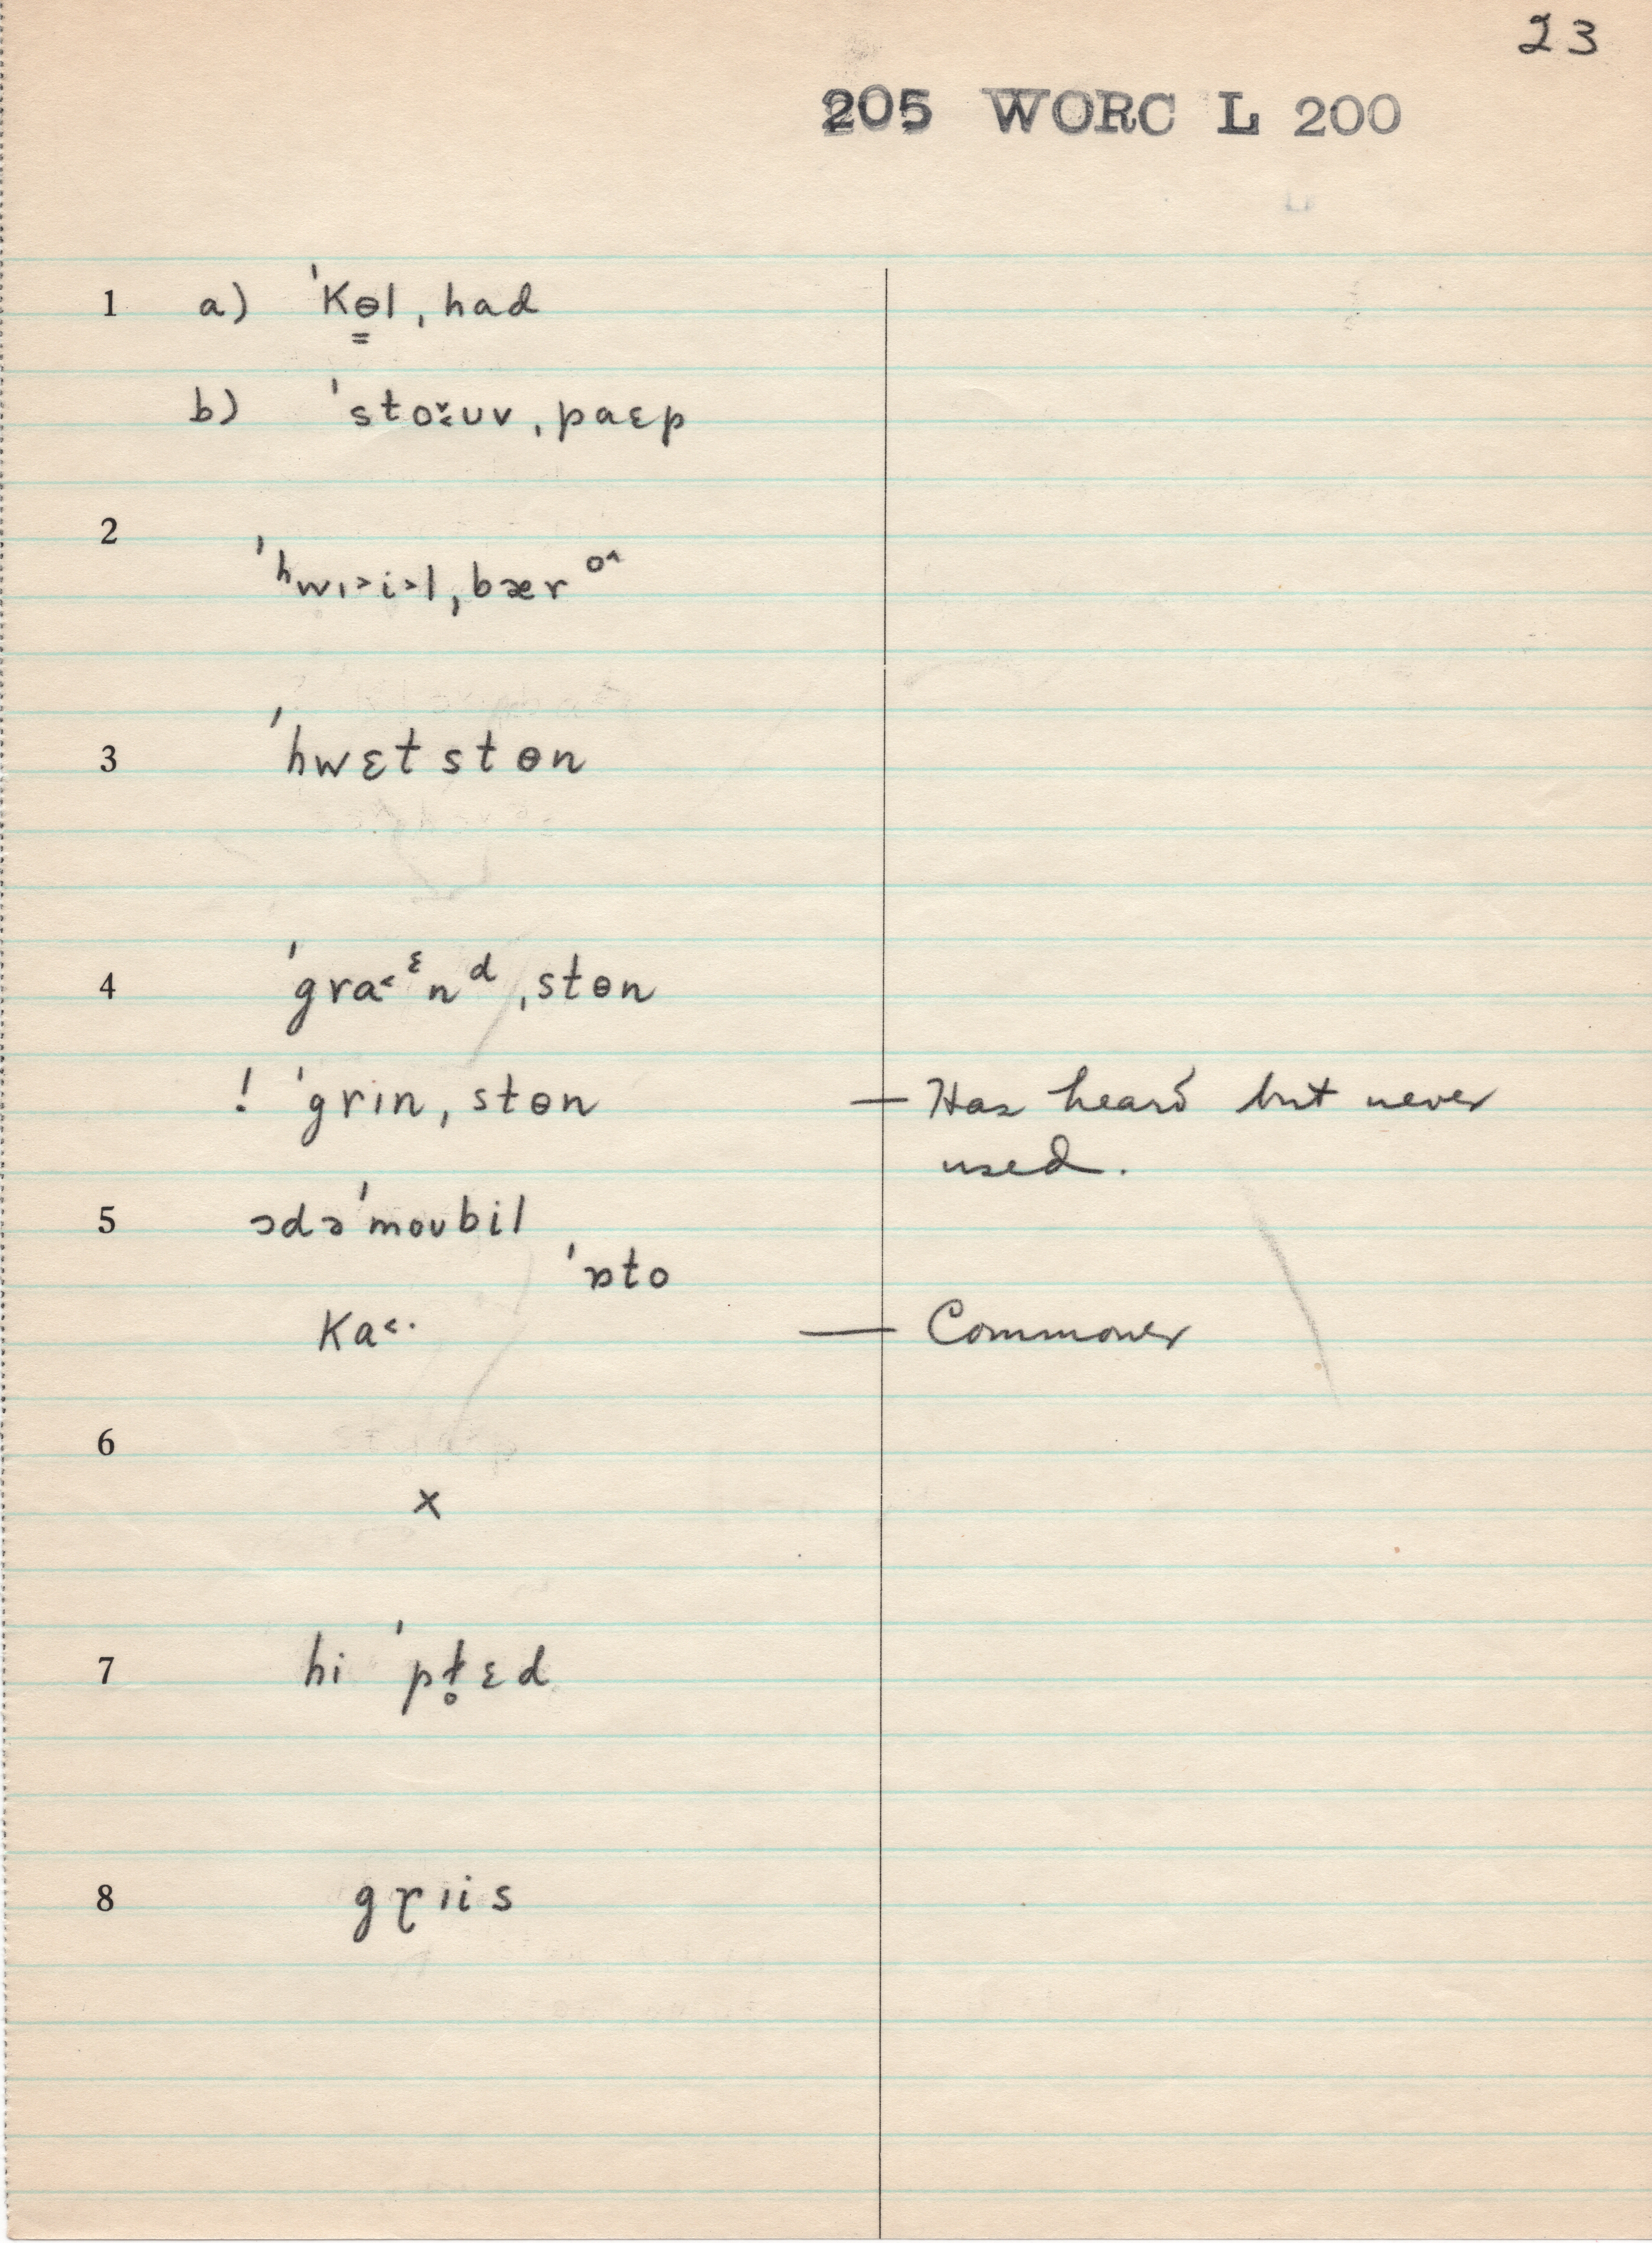 23
205 WORC L 200
1 a) ˈkɵ̳l ˌhad
b) ˈstoˇ˂ʊv ˌpaɛp
2
ˈhwɪ˃i˃l ˌbærᵒ^
3 ˈhwɛtstɵn
4 ˈgra˂ᵋnᵈ ˌstɵn
! ˈgrɪn ˌstɵn — Has heard but never
used.
5 ɔdəˈmoʊbil
ˈɒto
ka˂· — Commoner
6
x
7 hi ˈpɫ̥ɛd
8 gɽɪis